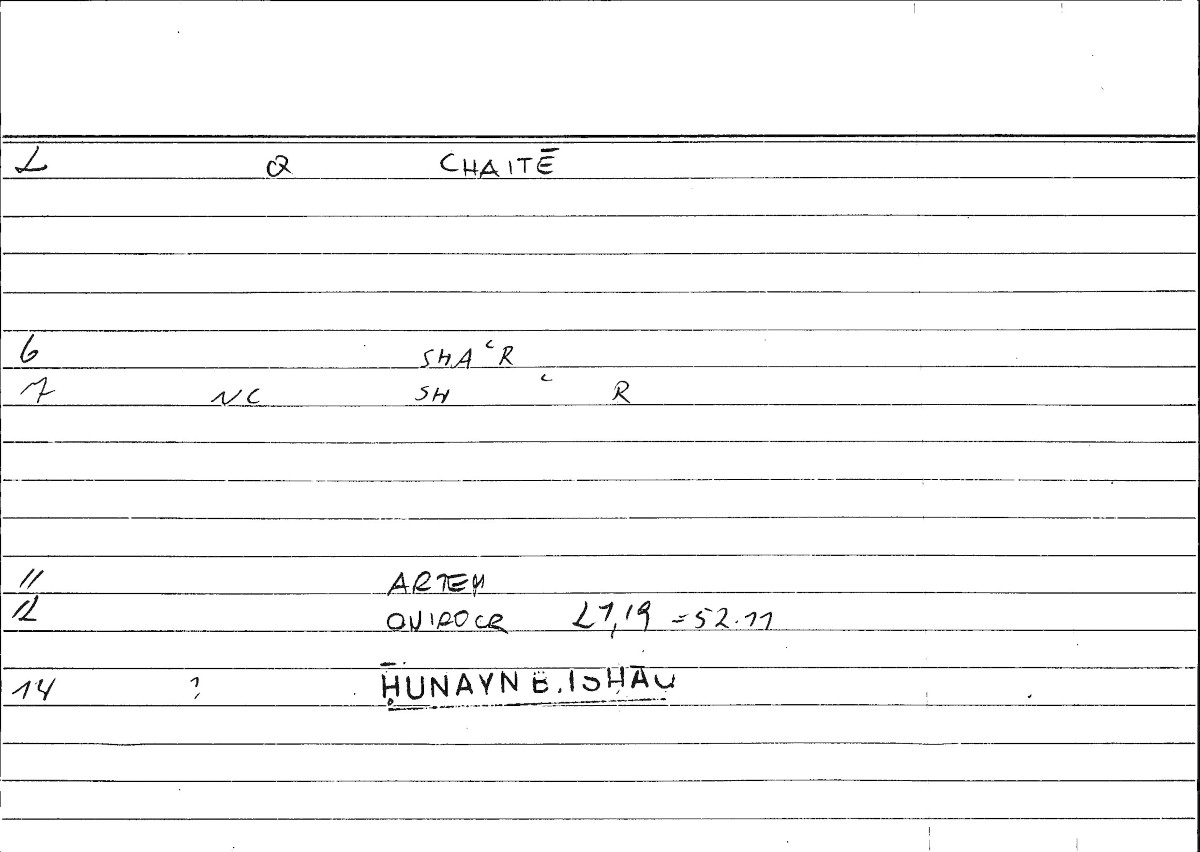 L Q CHAITĒ
6 SHAʿR
7 NC SH ʿ R
11 ARTEM
12 QUIROCR L7,19 =52.11
14 ? ḤUNAYN B. ISHĀQ